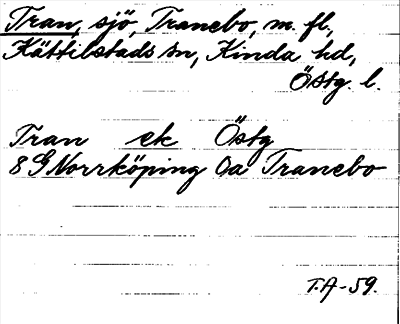 Tran, sjö, Tranebo, m. fl,
Kättilstads sn, Kinda hd,
Östg. l.
Tran ek Östg
8 G Norrköping 0a Tranebo
T.A-59.